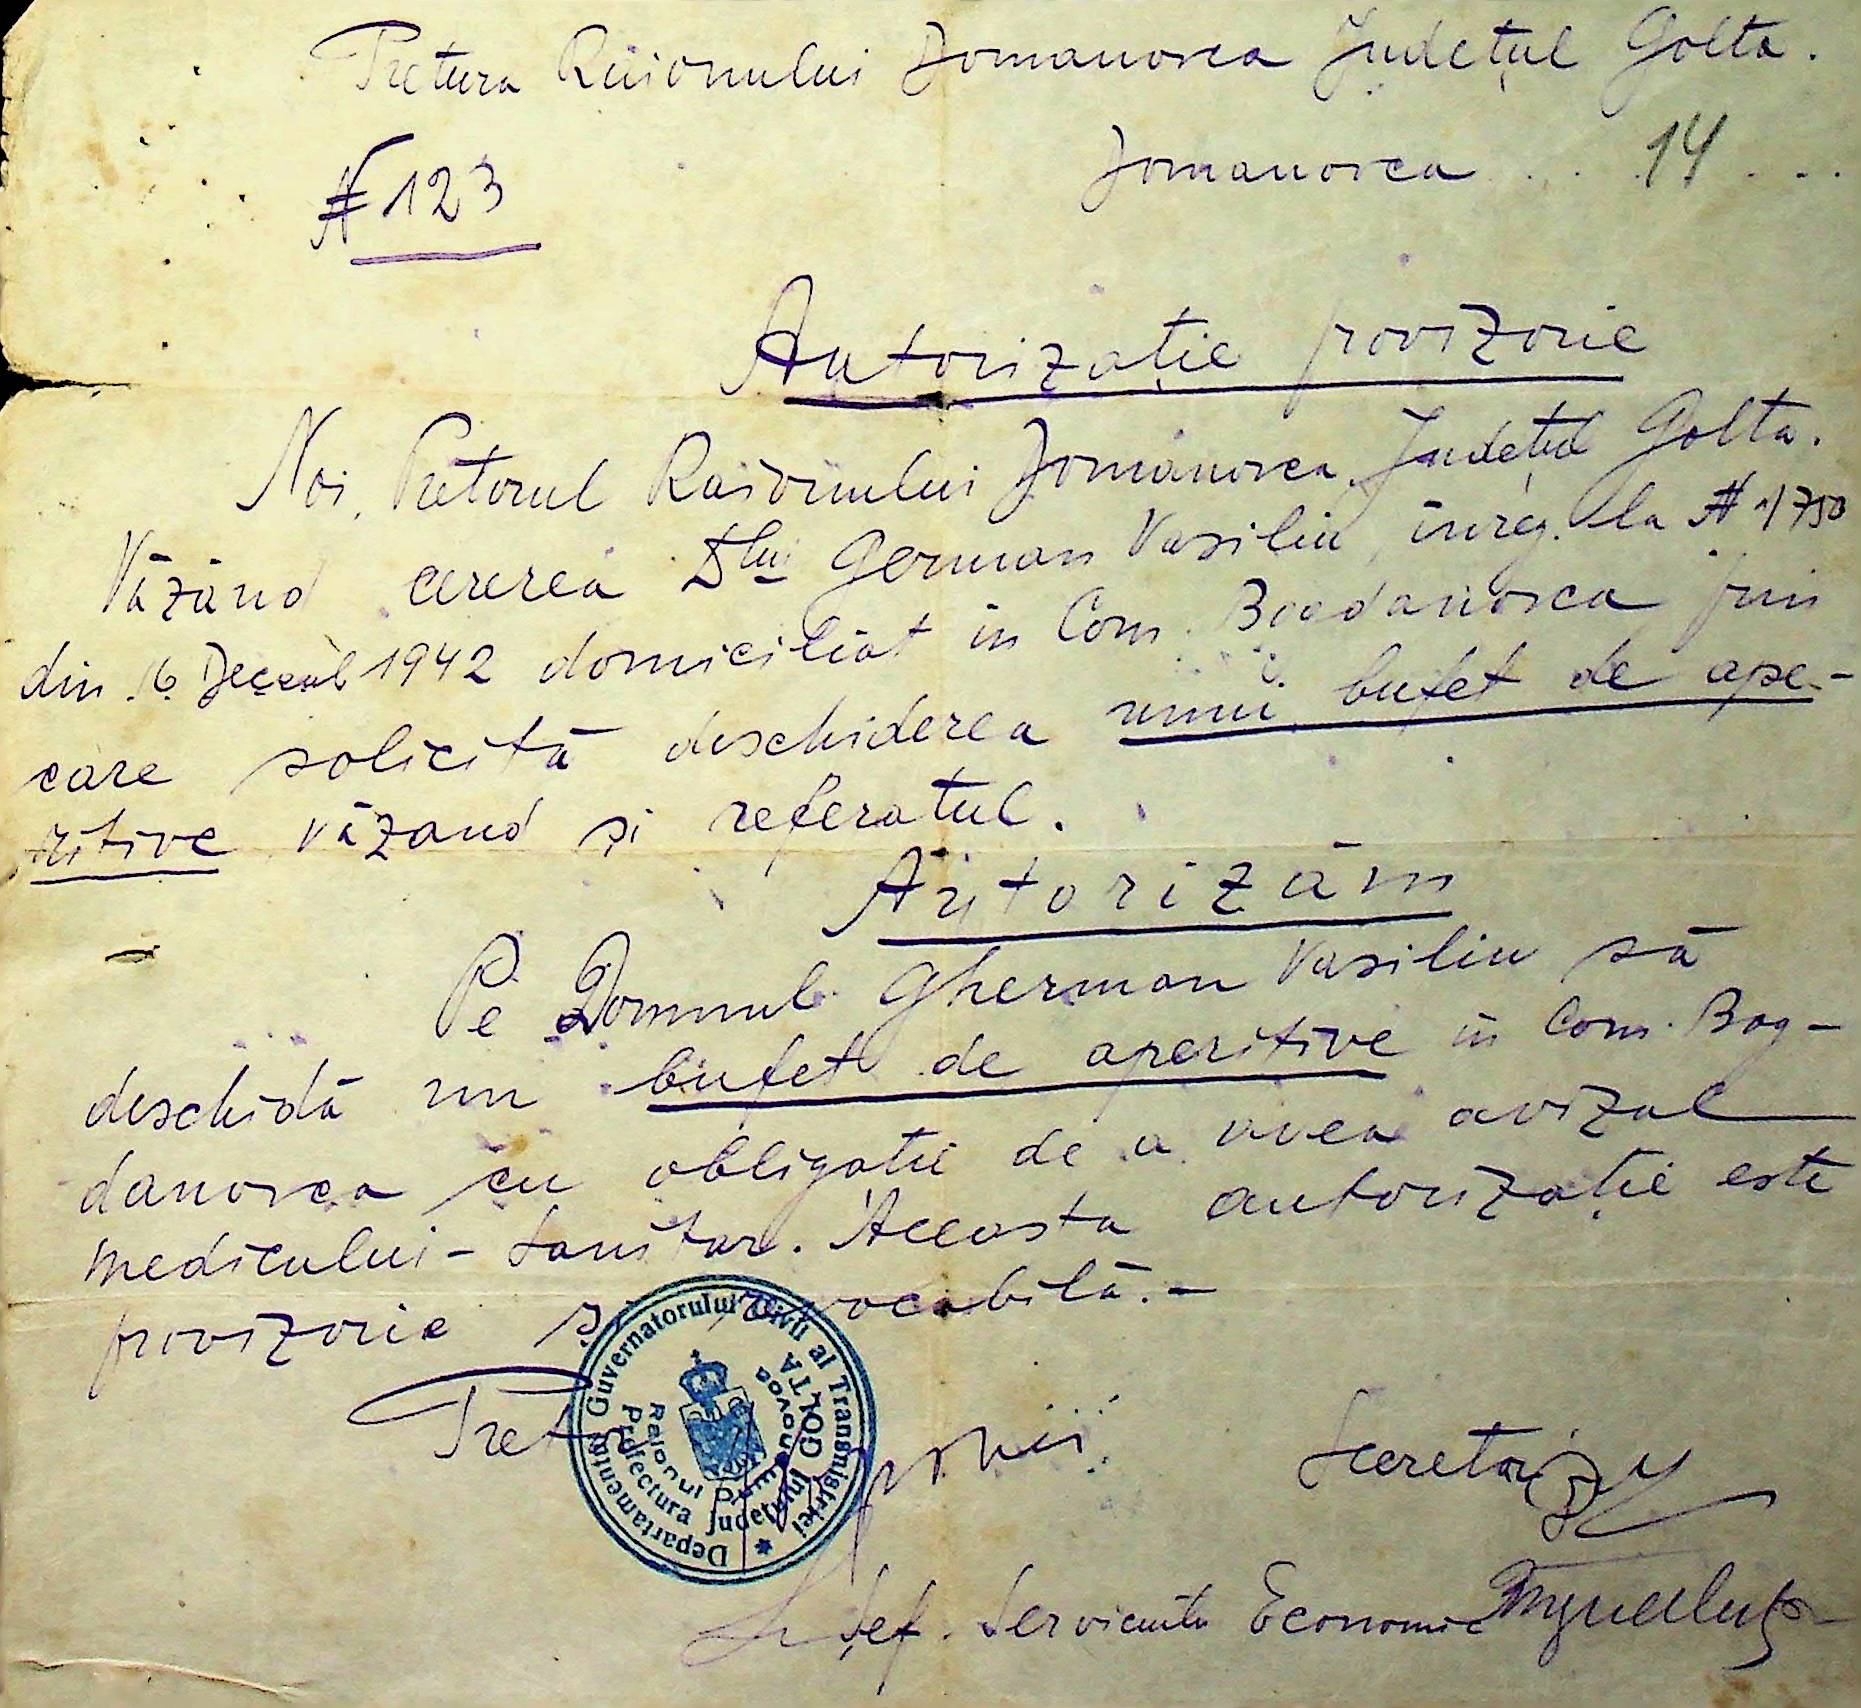 Pretura Raionului Domanovca Județul Golta.
Domanovca . . . 14 . . .
N 123
Autorizație provizorie
Noi, Pretorul Raionului Domanovca, Județul Golta.
Văzând cererea Dlui German Vasiliu, înreg. la N 1/750
din 16 Decemb 1942 domiciliat în Com. Bogdanovca prin
care solicită deschiderea unui bufet de ape-
ritive văzand și referatul.
Autorizăm
Pe Domnul Gherman Vasiliu să
deschidă un bufet de aperitive în Com. Bog-
danovca cu obligatie de a avea avizul
medicului-sanitar. Aceasta autorizație este
provizorie și revocabilă.-
Pretor
Secretar
Șef. Serviciului Economic
Departamentul Guvernatorului Civil al Transnistriei
Prefectura Județului GOLTA
Raionul